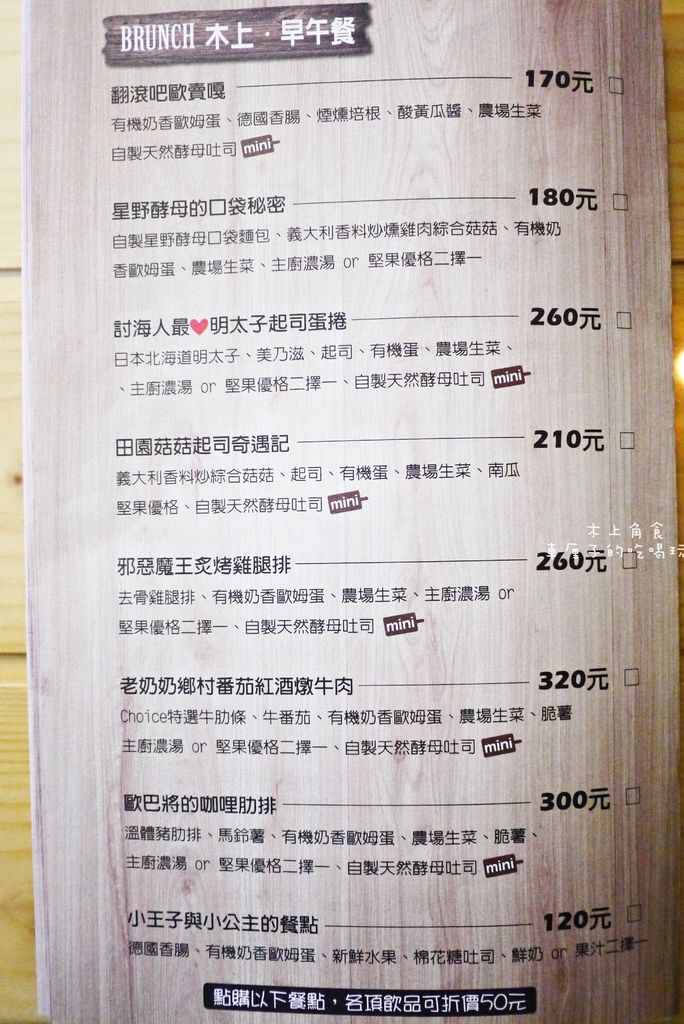 BRUNCH 木上·早午餐
翻滾吧歐賣嘎 170元
有機奶香歐姆蛋、德國香腸、煙燻培根、酸黃瓜醬、農場生菜
自製天然酵母吐司 mini
星野酵母的口袋秘密 180元
自製星野酵母口袋麵包、義大利香料炒燻雞肉綜合菇菇、有機奶
香歐姆蛋、農場生菜、主廚濃湯 or 堅果優格二擇一
討海人最❤明太子起司蛋捲 260元
日本北海道明太子、美乃滋、起司、有機蛋、農場生菜、
、主廚濃湯 or 堅果優格二擇一、自製天然酵母吐司 mini
田園菇菇起司奇遇記 210元
義大利香料炒綜合菇菇、起司、有機蛋、農場生菜、南瓜
堅果優格、自製天然酵母吐司 mini
木上角食
的吃喝玩
邪惡魔王炙烤雞腿排 260元
去骨雞腿排、有機奶香歐姆蛋、農場生菜、主廚濃湯 or
堅果優格二擇一、自製天然酵母吐司 mini
老奶奶鄉村番茄紅酒燉牛肉 320元
Choice特選牛肋條、牛番茄、有機奶香歐姆蛋、農場生菜、脆薯
主廚濃湯 or 堅果優格二擇一、自製天然酵母吐司 mini
歐巴將的咖哩肋排 300元
溫體豬肋排、馬鈴薯、有機奶香歐姆蛋、農場生菜、脆薯、
主廚濃湯 or 堅果優格二擇一、自製天然酵母吐司 mini
小王子與小公主的餐點 120元
德國香腸、有機奶香歐姆蛋、新鮮水果、棉花糖吐司、鮮奶 or 果汁二擇一
點購以下餐點，各項飲品可折價50元